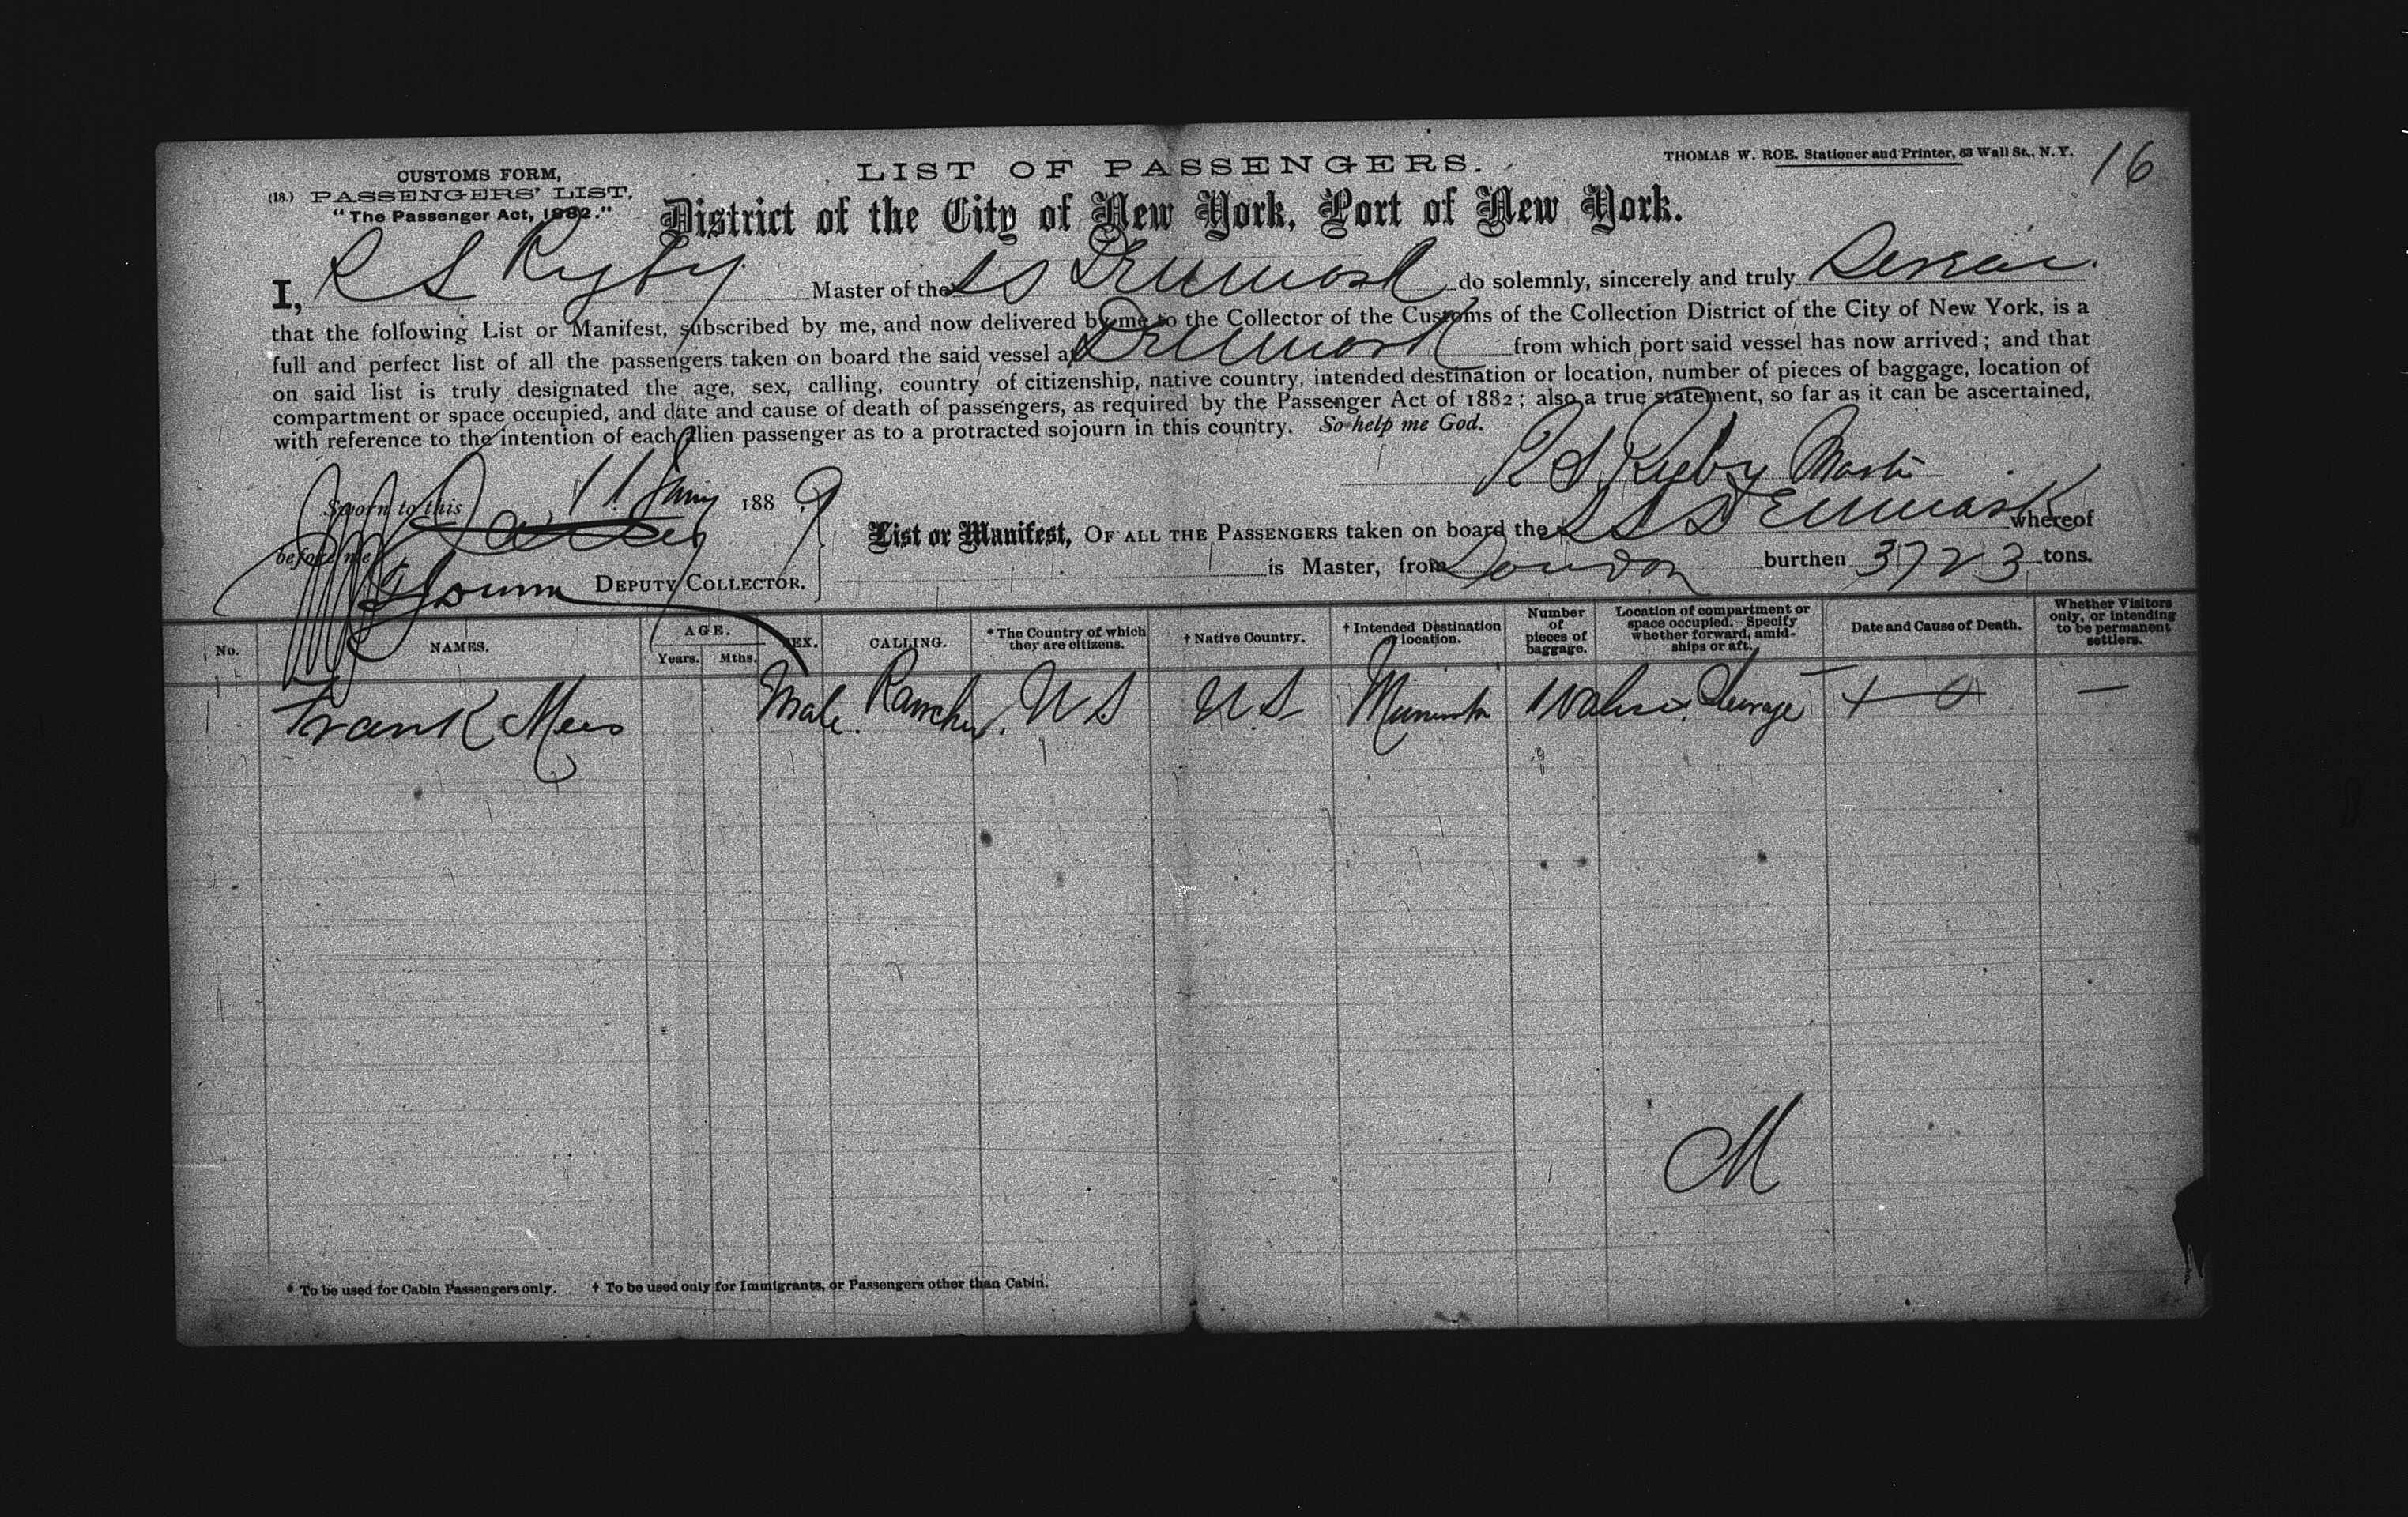 CUSTOMS FORM,
(18.) PASSENGERS' LIST,
"The Passenger Act, 1882."
LIST OF PASSENGERS.
THOMAS W. ROE. Stationer and Printer, 53 Wall St., N.Y.
16
District of the City of New York, Port of New York.
I, R S Rigby Master of the SS Denmark do solemnly, sincerely and truly Swear
that the following List or Manifest, subscribed by me, and now delivered by me to the Collector of the Customs of the Collection District of the City of New York, is a
full and perfect list of all the passengers taken on board the said vessel at Denmark from which port said vessel has now arrived; and that
on said list is truly designated the age, sex, calling, country of citizenship, native country, intended destination or location, number of pieces of baggage, location of
compartment or space occupied, and date and cause of death of passengers, as required by the Passenger Act of 1882; also a true statement, so far as it can be ascertained,
with reference to the intention of each alien passenger as to a protracted sojourn in this country. So help me God.
R S Rigby Master
Sworn to this 11 1889
before me
DEPUTY COLLECTOR.
List or Manifest, OF ALL THE PASSENGERS taken on board the SS Denmark whereof
is Master, from London burthen 3723 tons.
No.
NAMES.
AGE.
Years. Mths.
SEX.
CALLING.
* The Country of which they are citizens.
† Native Country.
† Intended Destination or location.
Number of pieces of baggage.
Location of compartment or space occupied. Specify whether forward, amidships or aft.
Date and Cause of Death.
Whether Visitors only, or intending to be permanent settlers.
1 Frank Mees Male. Rancher. U S U S 1 Valise. Steerage —
M
* To be used for Cabin Passengers only. † To be used only for Immigrants, or Passengers other than Cabin.